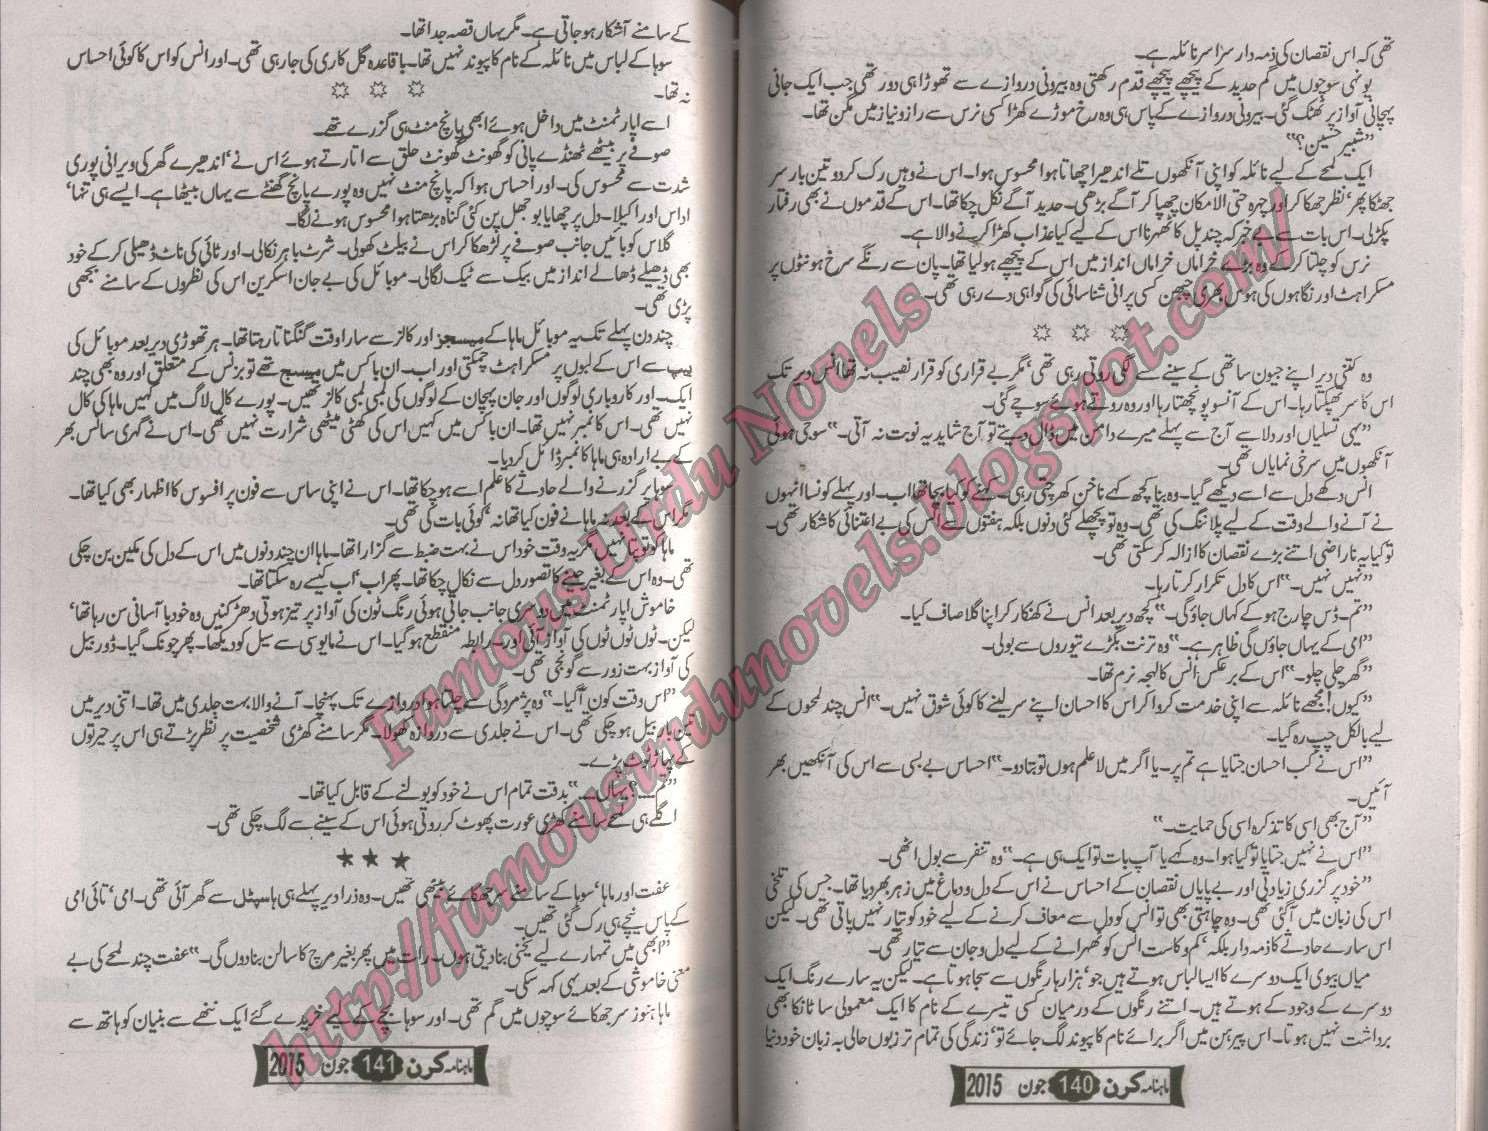 تھی کہ اس نقصان کی ذمہ دار سراسر نائلہ ہے۔
یونہی سوچوں میں گم حدید کے پیچھے پیچھے قدم رکھتی وہ بیرونی دروازے سے تھوڑا ہی دور تھی جب ایک جانی
پہچانی آواز پر ٹھٹک گئی۔ بیرونی دروازے کے پاس ہی وہ رخ موڑے کھڑا کسی نرس سے راز و نیاز میں مگن تھا۔
”شبیر حسین؟“
ایک لمحے کے لیے نائلہ کو اپنی آنکھوں تلے اندھیرا چھاتا ہوا محسوس ہوا۔ اس نے وہیں رک کر دو تین بار سر
جھٹکا پھر‘ نظر جھکا کر اور چہرہ حتی الامکان چھپا کر آگے بڑھی۔ حدید آگے نکل چکا تھا۔ اس کے قدموں نے بھی رفتار
پکڑ لی۔ اس بات سے بے خبر کہ چند پل کا ٹھہرنا اس کے لیے کیا عذاب کھڑا کرنے والا ہے۔
نرس کو چلتا کر کے وہ بڑے خراماں خراماں انداز میں اس کے پیچھے ہو لیا تھا۔ پان سے رنگے سرخ ہونٹوں پر
مسکراہٹ اور نگاہوں کی ہوس بھری چبھن کسی پرانی شناسائی کی گواہی دے رہی تھی۔
وہ کتنی دیر اپنے جیون ساتھی کے سینے سے لگی روتی رہی تھی‘ مگر بے قراری کو قرار نصیب نہ تھا۔ انس دیر تک
اس کا سر تھپکتا رہا۔ اس کے آنسو پونچھتا رہا اور وہ روتے ہوئے سوچے گئی۔
”یہی تسلیاں اور دلاسے آج سے پہلے میرے دامن میں ڈال دیتے تو آج شاید یہ نوبت نہ آتی۔“ سوجی ہوئی
آنکھوں میں سرخی نمایاں تھی۔
انس دکھے دل سے اسے دیکھے گیا۔ وہ بنا کچھ کہے ناخن کھرچتی رہی۔ کہنے کو کیا بچا تھا اب۔ اور پہلے کون سا انہوں
نے آنے والے وقت کے لیے پلاننگ کی تھی۔ وہ تو پچھلے کئی دنوں بلکہ ہفتوں سے انس کی بے اعتنائی کا شکار تھی۔
تو کیا یہ ناراضی اتنے بڑے نقصان کا ازالہ کر سکتی تھی۔
”نہیں نہیں۔“ اس کا دل تکرار کرتا رہا۔
”تم۔ ڈس چارج ہو کے کہاں جاؤ گی۔“ کچھ دیر بعد انس نے کھنکار کر اپنا گلا صاف کیا۔
”امی کے یہاں جاؤں گی ظاہر ہے۔“ وہ ترنت بگڑے تیوروں سے بولی۔
”گھر چلی چلو۔“ اس کے برعکس انس کا لہجہ نرم تھا۔
”کیوں! مجھے نائلہ سے اپنی خدمت کروا کر اس کا احسان اپنے سر لینے کا کوئی شوق نہیں۔“ انس چند لمحوں کے
لیے بالکل چپ رہ گیا۔
”اس نے کب احسان جتایا ہے تم پر۔ یا اگر میں لاعلم ہوں تو بتا دو۔“ احساس بے بسی سے اس کی آنکھیں بھر
آئیں۔
”آج بھی اسی کا تذکرہ اسی کی حمایت۔“
”اس نے نہیں جتایا تو کیا ہوا۔ وہ کہے یا آپ بات تو ایک ہی ہے۔“ وہ تنفر سے بول اٹھی۔
”خود پر گزری زیادتی اور بے پایاں نقصان کے احساس نے اس کے دل و دماغ میں زہر بھر دیا تھا۔ جس کی تلخی
اس کی زبان میں آ گئی تھی۔ وہ چاہتی بھی تو انس کو دل سے معاف کرنے کے لیے خود کو تیار نہیں پاتی تھی۔ لیکن
اس سارے حادثے کا ذمہ دار بلکہ‘ کم و کاست انس کو ٹھہرانے کے لیے دل و جان سے تیار تھی۔
میاں بیوی ایک دوسرے کا ایسا لباس ہوتے ہیں جو‘ ہزار ہا رنگوں سے سجا ہوتا ہے۔ لیکن یہ سارے رنگ ایک
دوسرے کے وجود کے ہوتے ہیں۔ اتنے رنگوں کے درمیان کسی تیسرے کے نام کا ایک معمولی سا ٹانکا بھی
برداشت نہیں ہوتا۔ اس پیرہن میں اگر برائے نام کا پیوند لگ جائے تو‘ زندگی کی تمام تر زبوں حالی بہ زبان خود دنیا
ماہنامہ کرن 140 جون 2015
کے سامنے آشکار ہو جاتی ہے۔ مگر یہاں قصہ جدا تھا۔
سوہا کے لباس میں نائلہ کے نام کا پیوند نہیں تھا۔ باقاعدہ گل کاری کی جا رہی تھی۔ اور انس کو اس کا کوئی احساس
نہ تھا۔
اسے اپارٹمنٹ میں داخل ہوئے ابھی پانچ منٹ ہی گزرے تھے۔
صوفے پر بیٹھے ٹھنڈے پانی کو گھونٹ گھونٹ حلق سے اتارتے ہوئے اس نے‘ اندھیرے گھر کی ویرانی پوری
شدت سے محسوس کی۔ اور احساس ہوا کہ پانچ منٹ نہیں وہ پورے پانچ گھنٹے سے یہاں بیٹھا ہے۔ ایسے ہی تنہا‘
اداس اور اکیلا۔ دل پر چھایا بوجھل پن کئی گناہ بڑھتا ہوا محسوس ہونے لگا۔
گلاس کو بائیں جانب صوفے پر لڑھکا کر اس نے بیلٹ کھولی۔ شرٹ باہر نکالی۔ اور ٹائی کی ناٹ ڈھیلی کر کے خود
بھی ڈھیلے ڈھالے انداز میں بیک سے ٹیک لگا لی۔ موبائل کی بے جان اسکرین اس کی نظروں کے سامنے بجھی
پڑی تھی۔
چند دن پہلے تک یہ موبائل ماہا کے میسجز اور کالز سے سارا وقت گنگناتا رہتا تھا۔ ہر تھوڑی دیر بعد موبائل کی
بیپ سے اس کے لبوں پر مسکراہٹ چمکتی اور اب۔ ان باکس میں میسج تھے تو بزنس کے متعلق اور وہ بھی چند
ایک۔ اور کاروباری لوگوں اور جان پہچان کے لوگوں کی لمبی لمبی کالز تھیں۔ پورے کال لاگ میں کہیں ماہا کی کال
نہیں تھی۔ اس کا نمبر نہیں تھا۔ ان باکس میں کہیں اس کی کھٹی میٹھی شرارت نہیں تھی۔ اس نے گہری سانس بھر
کے بے ارادہ ہی ماہا کا نمبر ڈائل کر دیا۔
سوہا پر گزرنے والے حادثے کا علم اسے ہو چکا تھا۔ اس نے اپنی ساس سے فون پر افسوس کا اظہار بھی کیا تھا۔
مگر اس کے بعد نہ ماہا نے فون کیا تھا نہ‘ کوئی بات کی تھی۔
ماہا کو تو پتا نہیں مگر یہ وقت خود اس نے بہت ضبط سے گزارا تھا۔ ماہا ان چند دنوں میں اس کے دل کی مکین بن چکی
تھی۔ وہ اس کے بغیر جینے کا تصور دل سے نکال چکا تھا۔ پھر اب‘ اب کیسے رہ سکتا تھا۔
خاموش اپارٹمنٹ میں دوسری جانب جاتی ہوئی رنگ ٹون کی آواز پر تیز ہوتی دھڑکنیں وہ خود با آسانی سن رہا تھا‘
لیکن۔ ٹوں ٹوں ٹوں کی آواز آئی اور۔ رابطہ منقطع ہو گیا۔ اس نے مایوسی سے سیل کو دیکھا۔ پھر چونک گیا۔ ڈور بیل
کی آواز بہت زور سے گونجی تھی۔
”اس وقت کون آ گیا۔“ وہ پژمردگی سے چلتا ہوا دروازے تک پہنچا۔ آنے والا بہت جلدی میں تھا۔ اتنی دیر میں
تین بار بیل ہو چکی تھی۔ اس نے جلدی سے دروازہ کھولا۔ مگر سامنے کھڑی شخصیت پر نظر پڑتے ہی اس پر حیرتوں
کے پہاڑ ٹوٹ پڑے۔
”تم۔۔۔؟ یہاں۔“ بدقت تمام اس نے خود کو بولنے کے قابل کیا تھا۔
اگلے ہی لمحے سامنے کھڑی عورت پھوٹ کر روتی ہوئی اس کے سینے سے لگ چکی تھی۔
عفت اور ماہا‘ سوہا کے سامنے سر جھکائے بیٹھی تھیں۔ وہ ذرا دیر پہلے ہی ہاسپٹل سے گھر آئی تھی۔ امی‘ تائی امی
کے پاس نیچے ہی رک گئی تھیں۔
”ابھی میں تمہارے لیے یخنی بنا دیتی ہوں۔ رات میں پھر بغیر مرچ کا سالن بنا دوں گی۔“ عفت چند لمحے کی بے
معنی خاموشی کے بعد یہی کہہ سکی۔
ماہا ہنوز سر جھکائے سوچوں میں گم تھی۔ اور سوہا بچے کے لیے خریدے گئے ایک ننھے سے بنیان کو ہاتھ سے
ماہنامہ کرن 141 جون 2015
Famous Urdu Novels
http://famousurdunovels.blogspot.com/